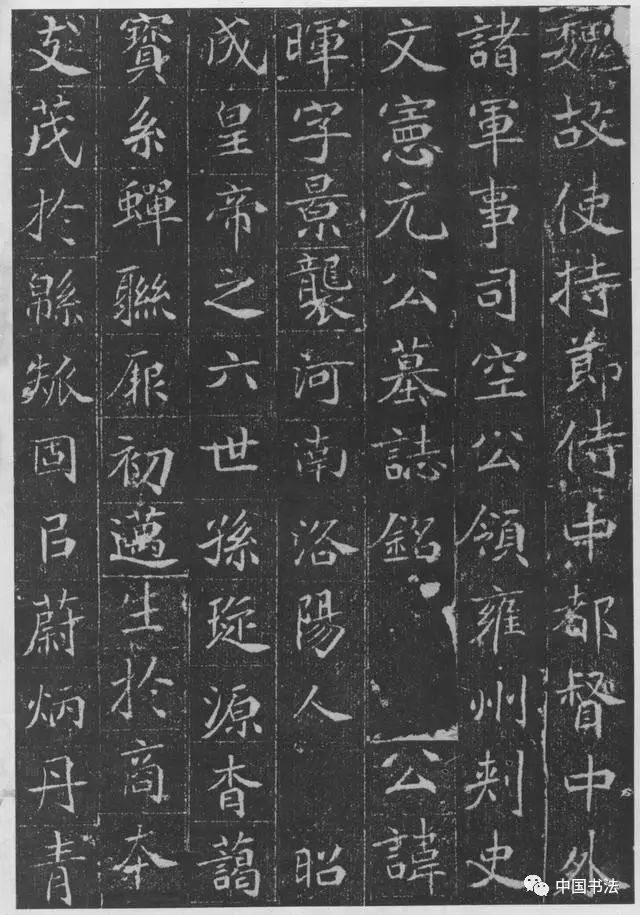 魏故使持節侍中都督中外
諸軍事司空公領雍州刾史
文憲元公墓誌銘 公諱
暉字景襲河南洛陽人 昭
成皇帝之六世孫琁源杳藹
寶系蟬聯厥初邁生於商本
支茂於緜瓞固㠯蔚炳丹青
中国书法